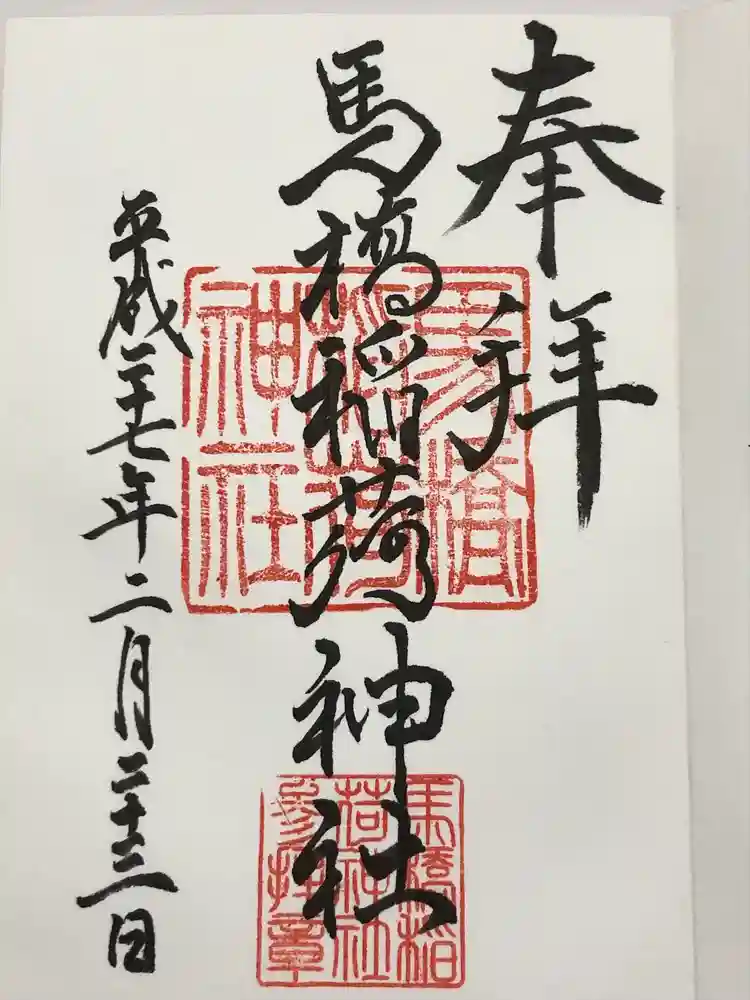 奉拝
馬橋稲荷神社
平成二十七年二月二十三日
馬橋
稲荷
神社
馬橋稲
荷神社
参拝章